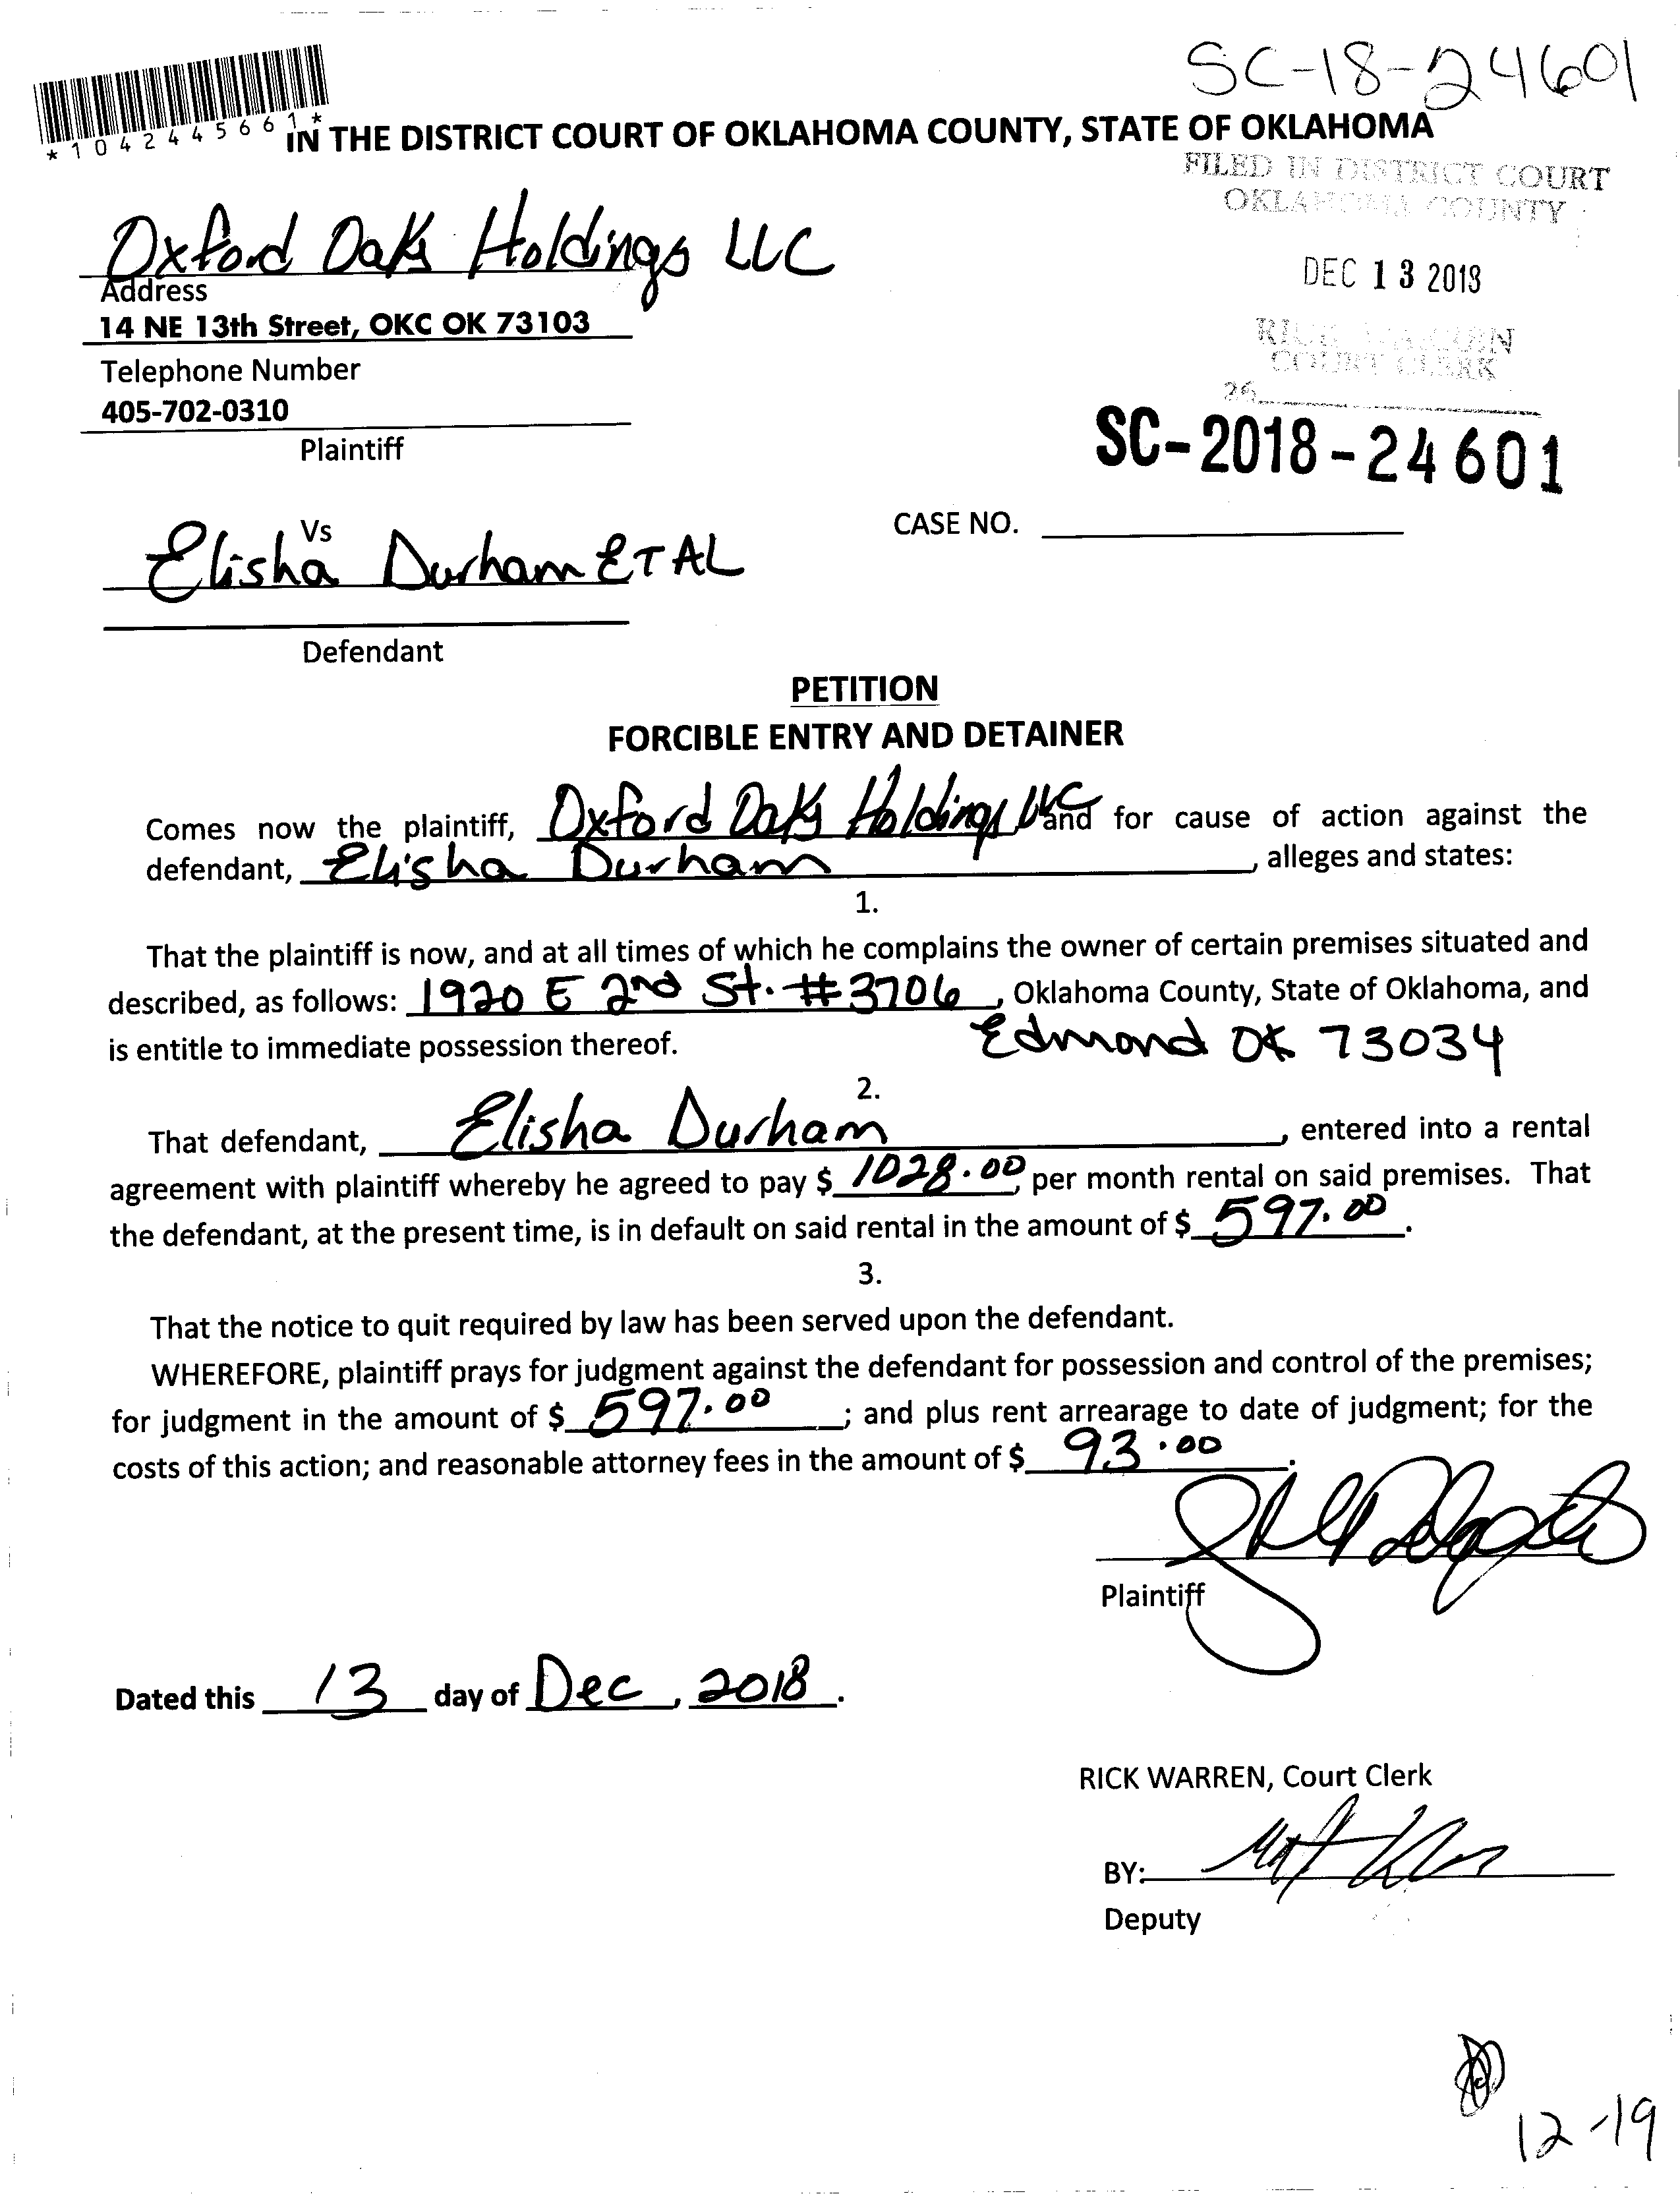 SC-18-24601
*1042445661*
IN THE DISTRICT COURT OF OKLAHOMA COUNTY, STATE OF OKLAHOMA
FILED IN DISTRICT COURT
OKLAHOMA COUNTY
Oxford Oaks Holdings LLC
Address
14 NE 13th Street, OKC OK 73103
Telephone Number
405-702-0310
Plaintiff
DEC 13 2018
RICK WARREN
COURT CLERK
26
SC-2018-24601
Vs
CASE NO.
Elisha Durham ET AL
Defendant
PETITION
FORCIBLE ENTRY AND DETAINER
Comes now the plaintiff, Oxford Oaks Holdings LLC and for cause of action against the
defendant, Elisha Durham, alleges and states:
1.
That the plaintiff is now, and at all times of which he complains the owner of certain premises situated and
described, as follows: 1920 E 2nd St. #3706, Oklahoma County, State of Oklahoma, and
is entitle to immediate possession thereof. Edmond OK 73034
2.
That defendant, Elisha Durham, entered into a rental
agreement with plaintiff whereby he agreed to pay $ 1028.00, per month rental on said premises. That
the defendant, at the present time, is in default on said rental in the amount of $ 597.00.
3.
That the notice to quit required by law has been served upon the defendant.
WHEREFORE, plaintiff prays for judgment against the defendant for possession and control of the premises;
for judgment in the amount of $ 597.00; and plus rent arrearage to date of judgment; for the
costs of this action; and reasonable attorney fees in the amount of $ 93.00.
Plaintiff
Dated this 13 day of Dec, 2018.
RICK WARREN, Court Clerk
BY:
Deputy
12-19